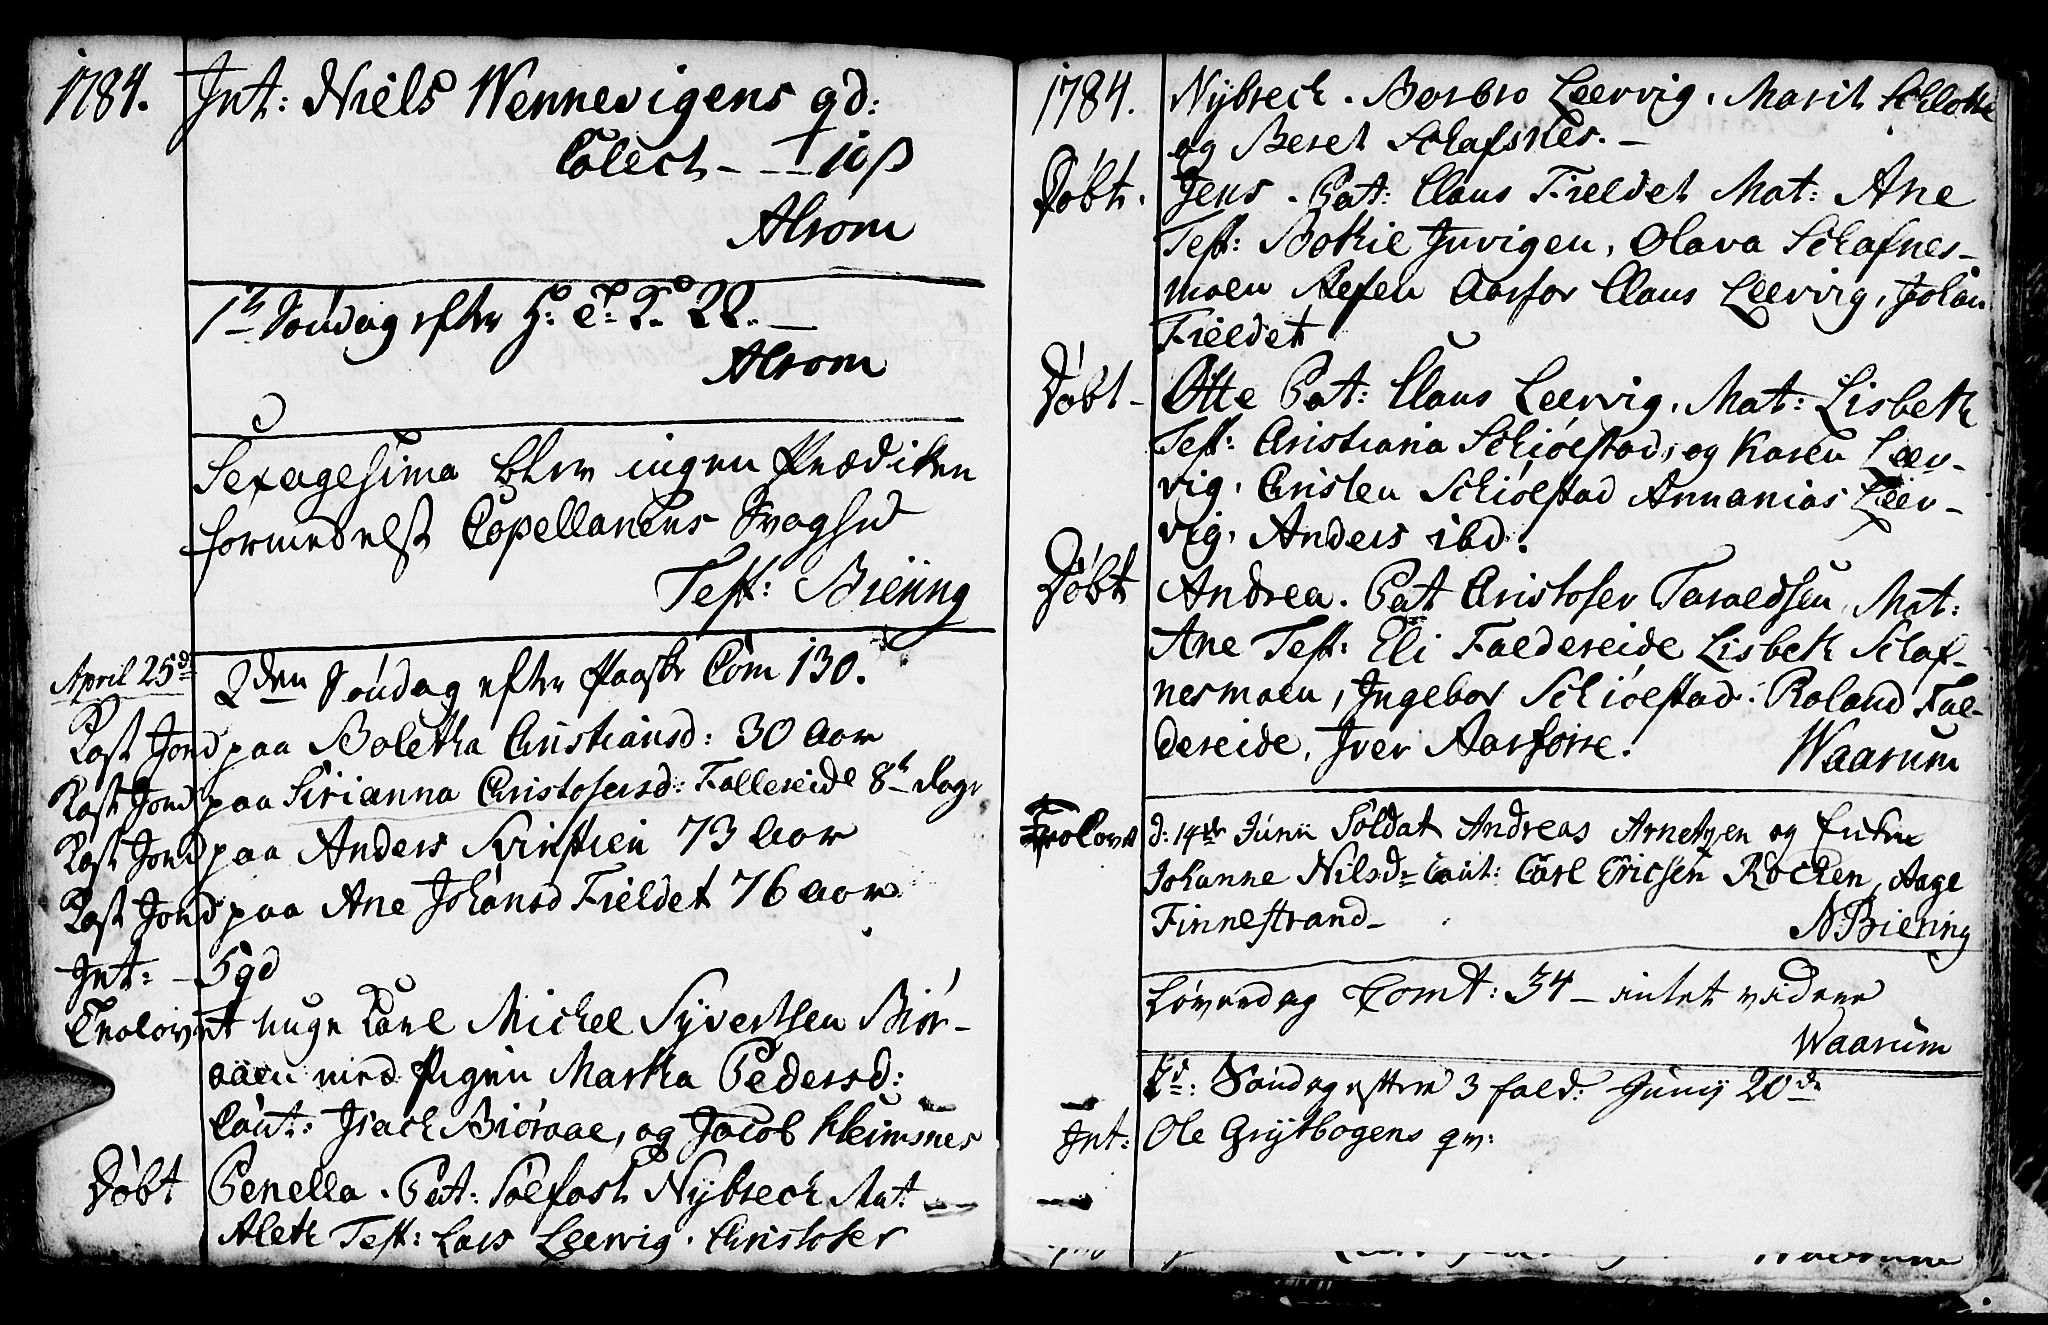 1784. Int: Niels Wennevigens qd:
Colect - - - 10 ß
Alrom
1te Søndag efter H: 3 K: 22. —
Alrom
Sexagesima blev ingen Prædiken
formedelst Capellanens Svaghed
Test: Biering
April 25d 2den Søndag efter Paaske Com 130.
Kast Jord paa Boletha Cristiansd: 30 Aar
Kast Jord paa Sirianna Cristofersd: Fallereide 8te Dage
Kast Jord paa Anders 73 Aar
Kast Jord paa Ane Johansd Fieldet 76 aar
Int: — 5 qd
Trolovet unge Karl Michel Syvertsen Biør-
aaen med Pigen Martha Pedersd:
Caut: Isach Bioraae, og Jacob Kleimsnes
Døbt Penella. Pat: Solfast Nybrech Mat:
Aleth Test: Lars Leervig. Cristofer
1784. Nybrech. Barbro Leervig. Marit Schlotte
og Beret Schafsnes. —
Døbt. Jens. Pat: Claus Fieldet Mat: Ane
Test: Bothie Juvigen, Olava Schafnes-
moen Aefen Aarfor Claus Leervig, Johan
Fieldet
Døbt — Otte Pat: Claus Leervig. Mat: Lisbeth
Test: Cristiana Schiølstad, og Karen Leer-
vig, Cristen Schiølstad Annanias Leer-
vig, Anders ibd.
Døbt Andrea. Pat Cristofer Taraldsen, Mat:
Ane Test: Eli Faldereide Lisbeth Schaf-
nesmoen, Ingebor Schiølstad. Roland Fal-
dereide, Iver Aarforre.
Waarum
Trolovet d: 14de Junii Soldat Andreas Arnetzen og Enke
Johanne Nilsd= Caut: Carl Ericsen Kochen, Aage
Finnestrand —
N Biering
Løverdag Comt: 34 — intet videre
Waarum
2d: Søndag efter 3 fold: Junij 20de
Int: Ole Grytbogens qv: